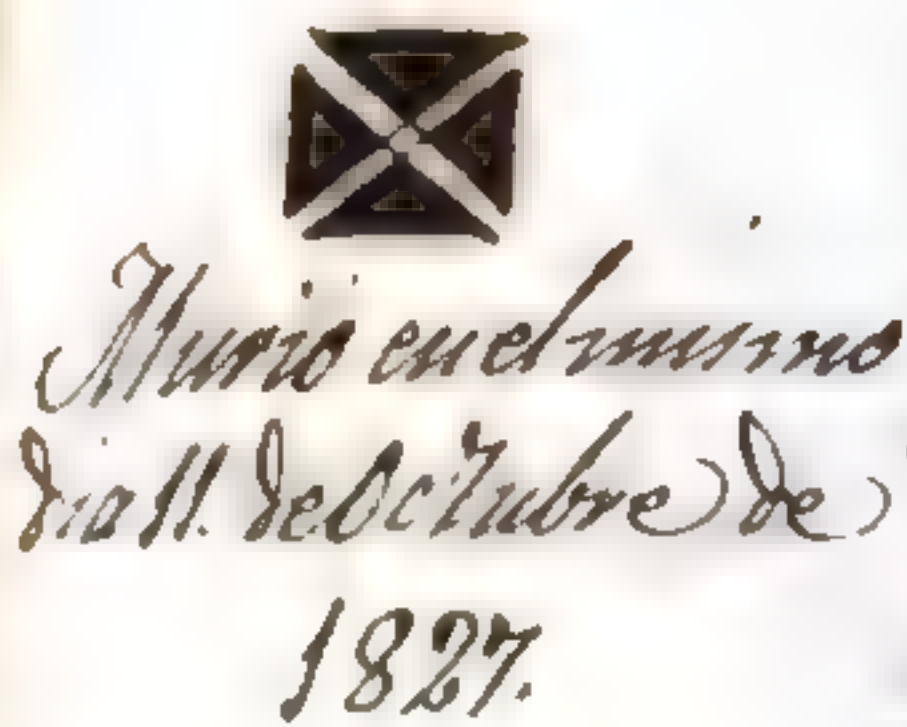 Murió en el mismo
dia 11. de Octubre de
1827.